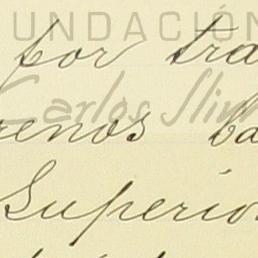 UNDACIÓN
por tra
Carlos Slim
renos ba
Superio